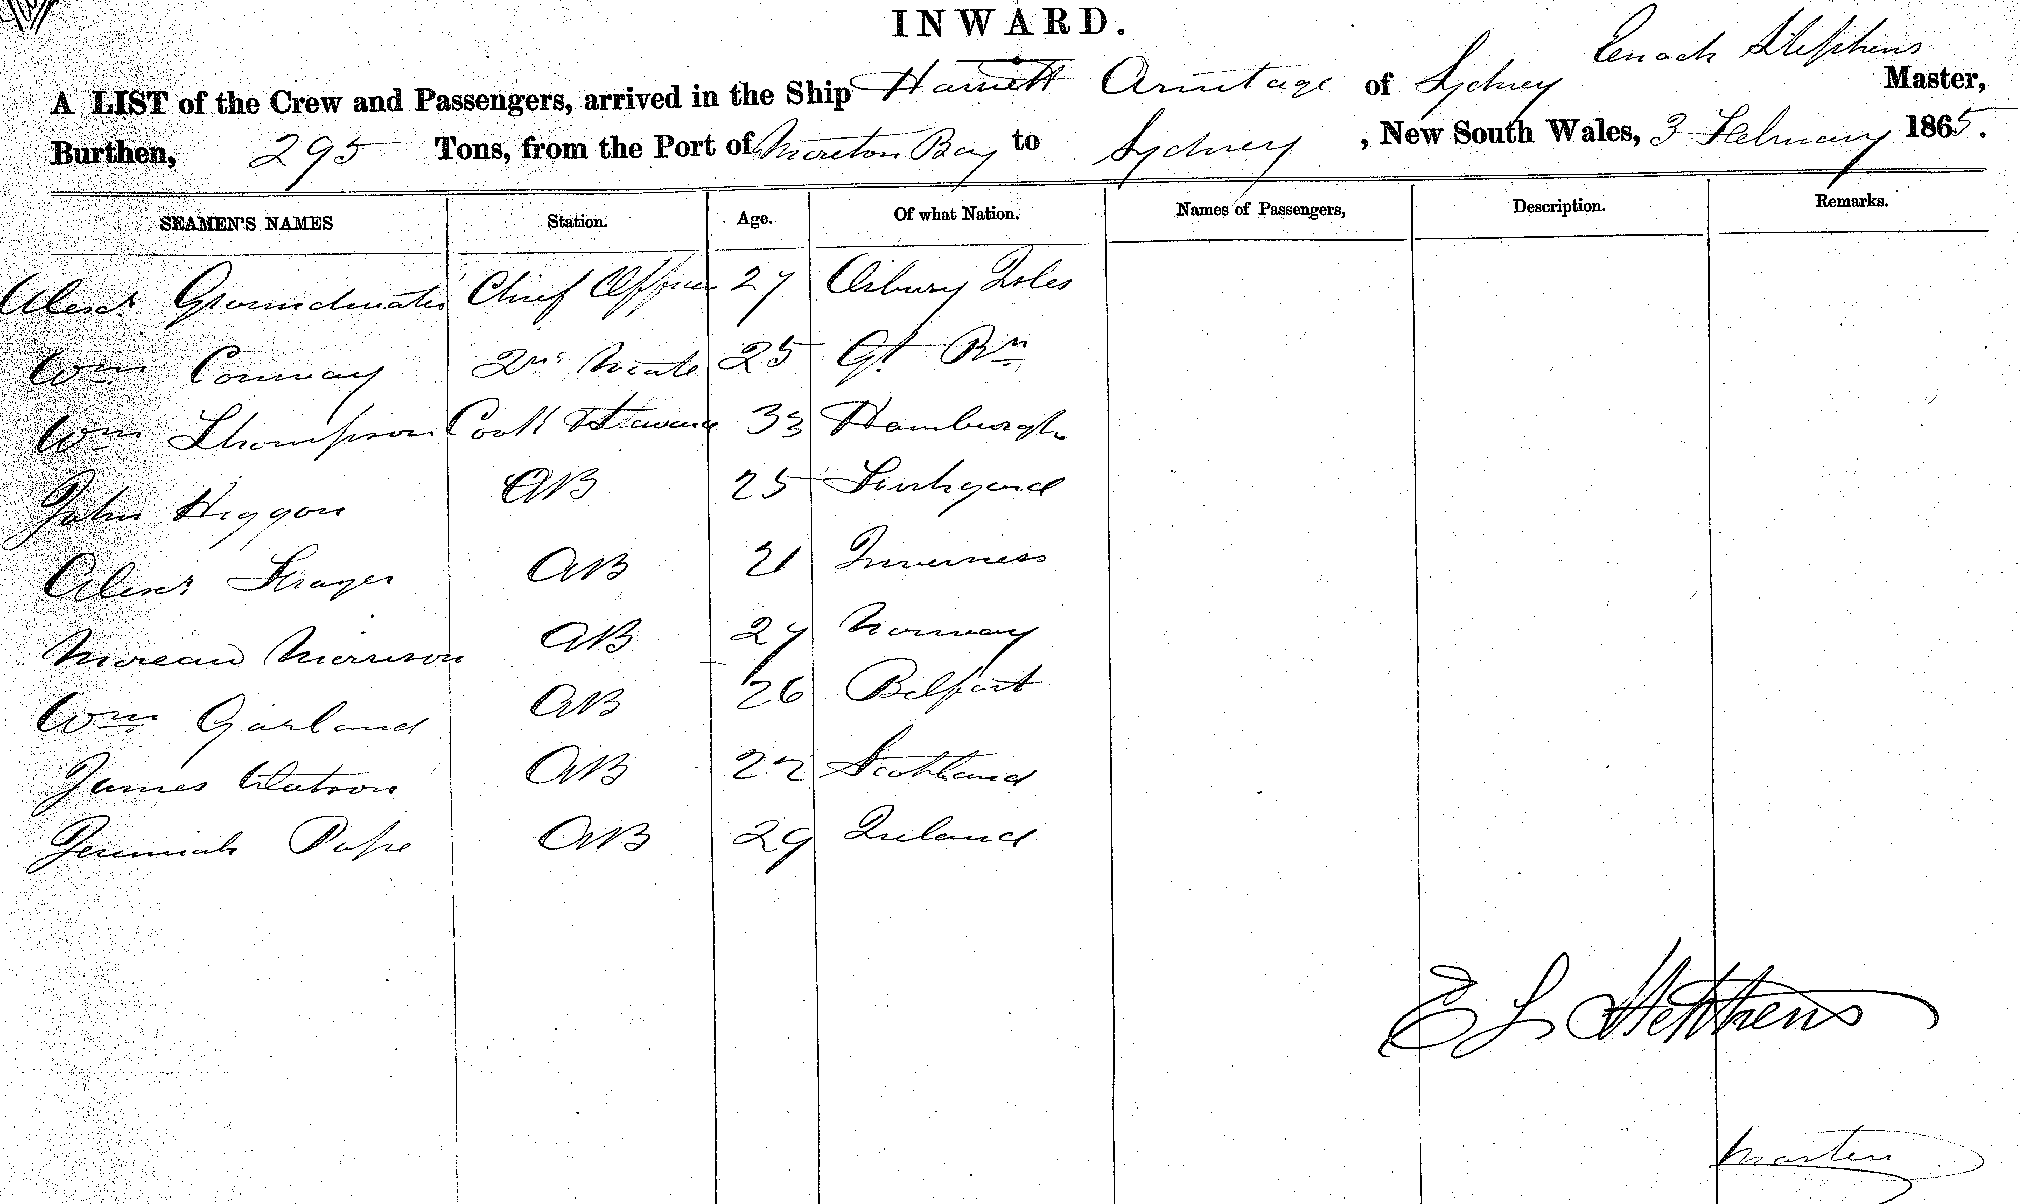 INWARD.
Enoch Stephens
A LIST of the Crew and Passengers, arrived in the Ship Harriett Armitage of Sydney Master,
Burthen, 295 Tons, from the Port of Moreton Bay to Sydney , New South Wales, 3 February 1865.
SEAMEN'S NAMES Station. Age. Of what Nation. Names of Passengers, Description. Remarks.
Alexr Groundwater Chief Officer 27 Isles
Wm Conway 2nd Mate 25 Gt Brn
Wm Thompson Cook Steward 33 Hamburgh
John Higgon AB 25
Alexr AB 21 Inverness
Morrison AB 27 Norway
Wm Garland AB 26 Belfast
James Watson AB 22 Scotland
Jeremiah Pope AB 29 Ireland
E S Stephens
Master